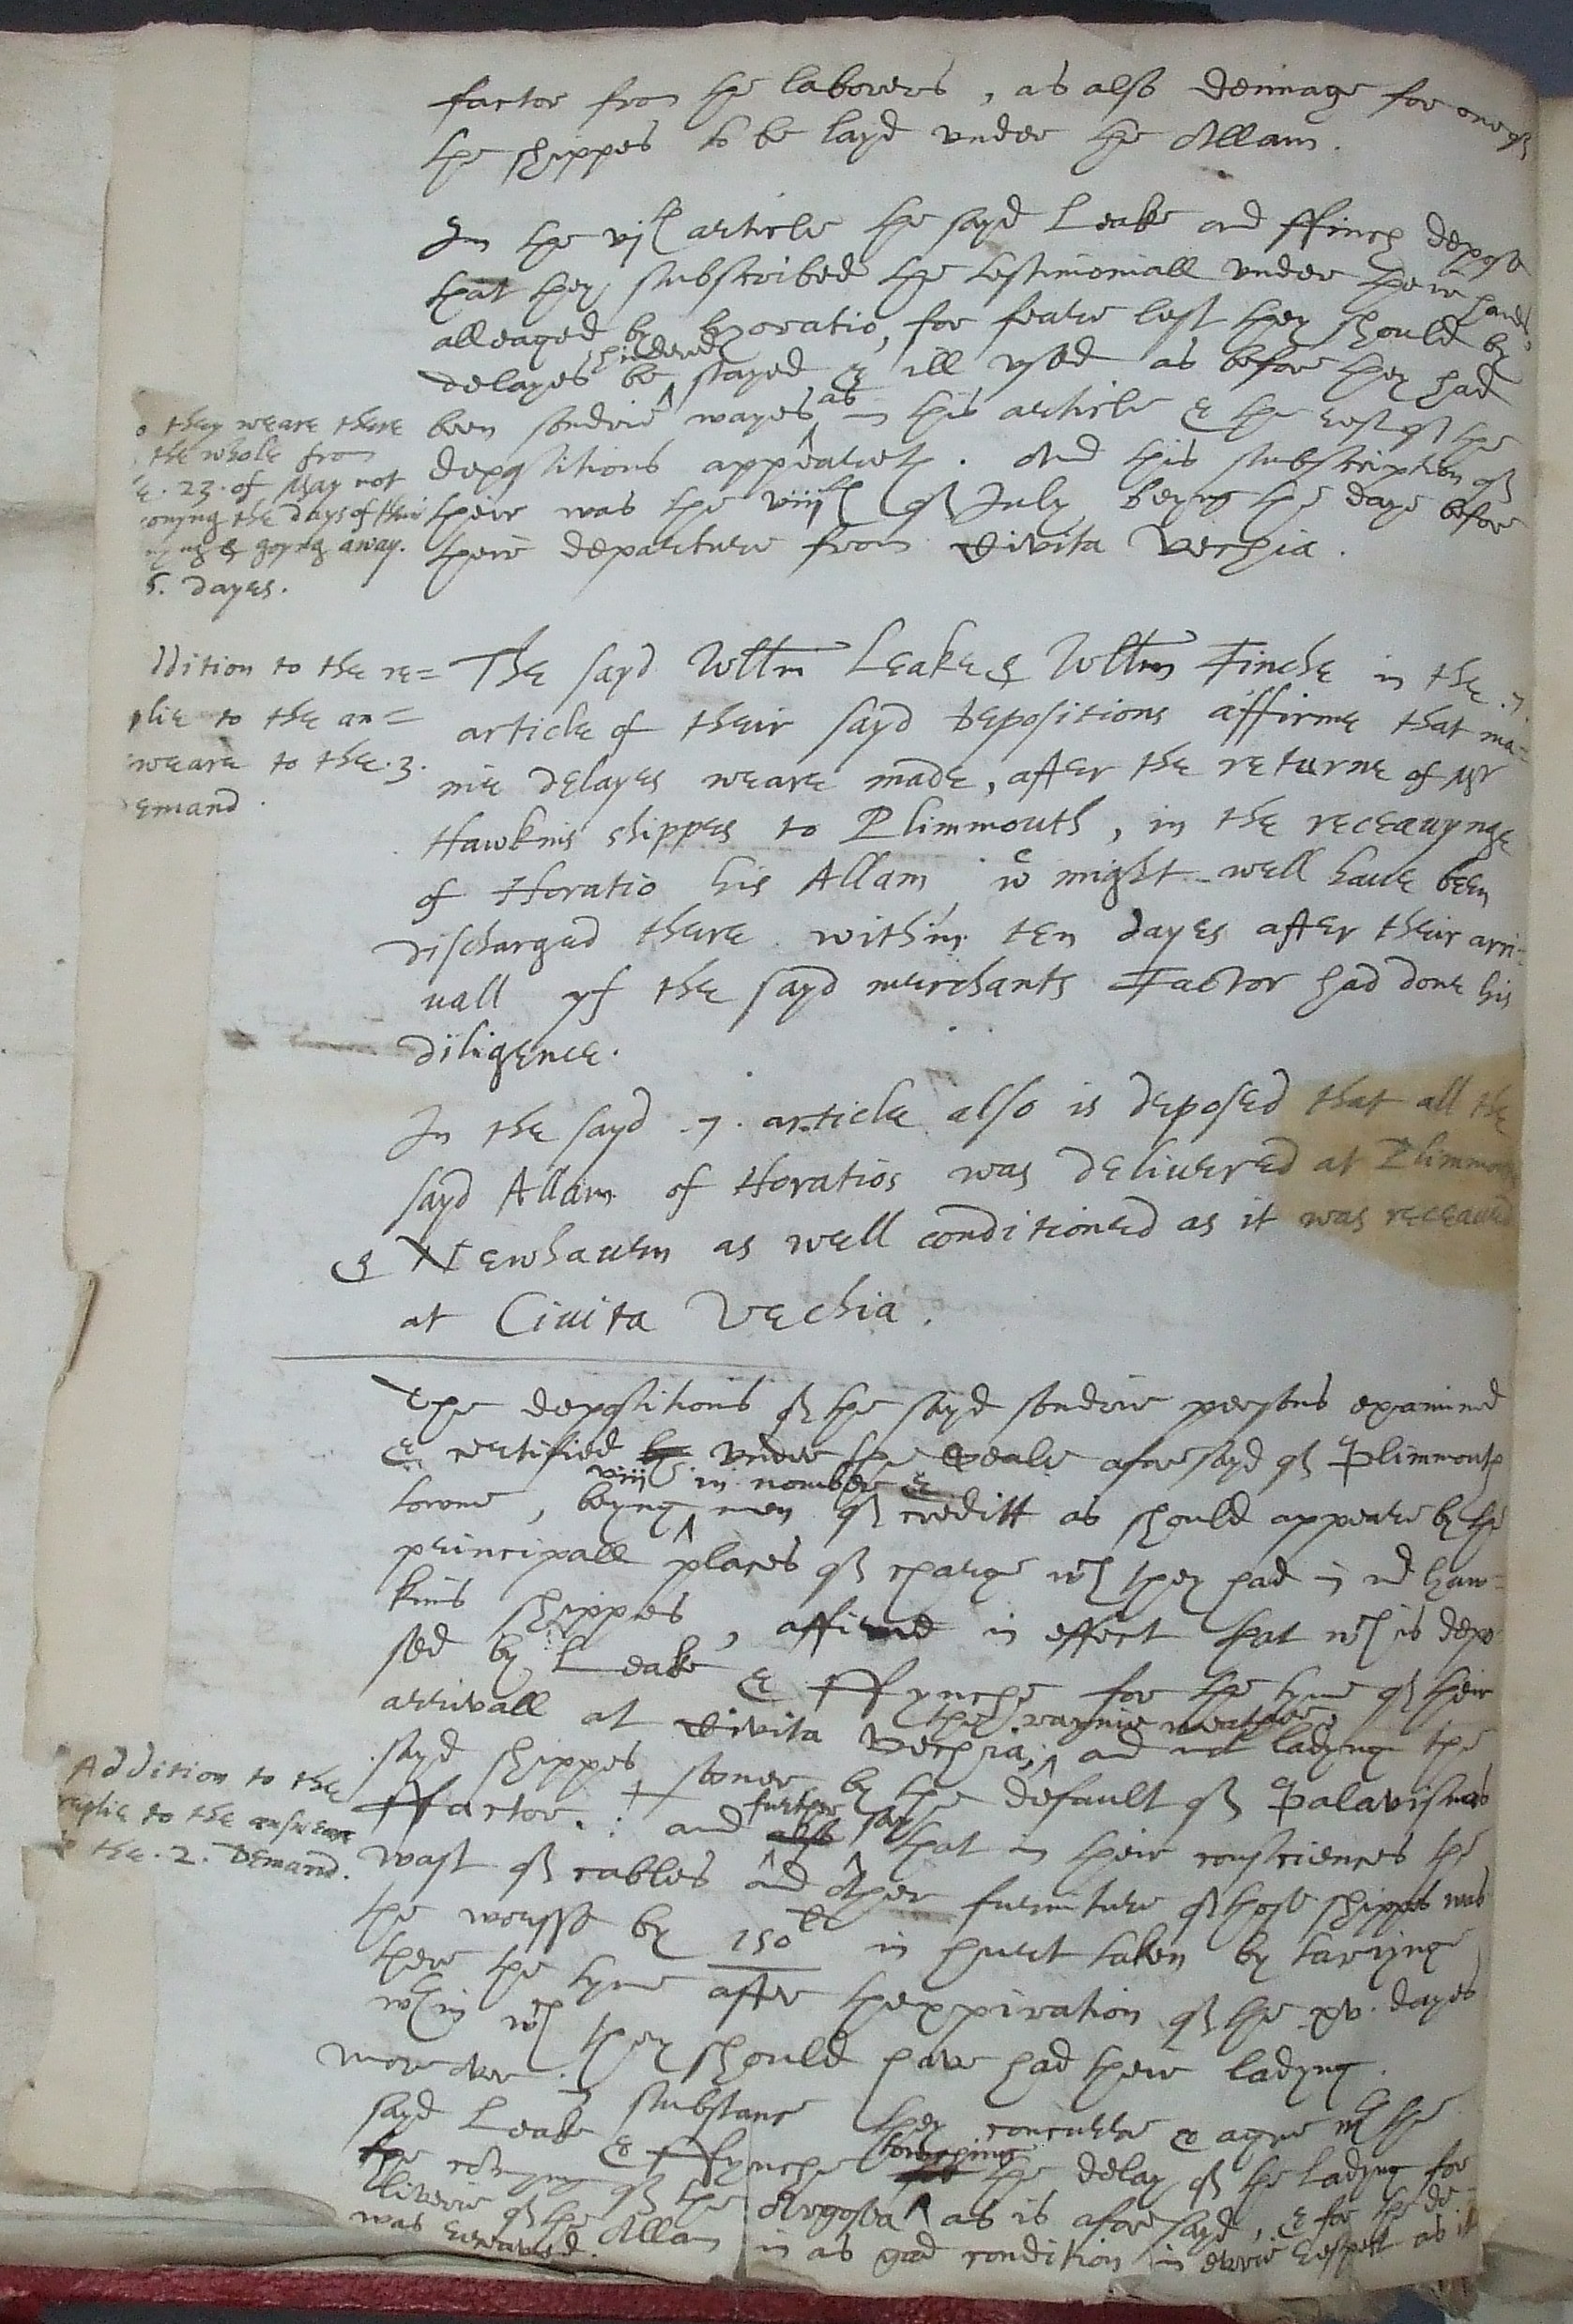 factor from the laborers, as also dennage for one of
the shippes to be layd under the Allam.
In the vijth article the sayd Leake and ffinch depose
that they subscribed the testimoniall under their hands
alleaged by Horatio, for feare lest they should by
delayes be stayed & ill used as before they had
been sondrie hindered wayes as in this article & the rest of the
depositions appeareth. And this subscription of
their was the viiijth of July beyng the daye before
their departure from Civita Vechia.
they weare there
the whole from
23. of May not
the days of their
& goyng away.
dayes.
ddition to the re=
plie to the an=
sweare to the .3.
demand.
The sayd Willm Leake & Willm Finche in the .7.
article of their sayd depositions affirme that ma=
nie delayes weare made, after the returne of Mr
Hawkins shippes to Plimmouth, in the receauynge
of Horatio his Allam, wc might well haue been
discharged theare within ten dayes after their arri=
uall yf the sayd merchants Factor had done his
diligence.
In the sayd .7. article also is deposed that all the
sayd Allam of Horatios was deliuered at Plimmou
& Newhauen as well conditioned as it was receaued
at Ciuita Vechia.
The depositions of the sayd sondrie persons examined
& certified by under the Seale aforesayd of Plimmouth
towne, beyng viij in nomber & men of creditt as should appeare by the
principall places of charge wch they had in Mr Haw=
kins shippes, affirme in effect that wch is depo
sed by Leake & ffynche for the tyme of their
arrivall at Civita Vechia, the raynie weather, and not ladyng the
sayd shippes soner by the default of Palavisinos
ffactor. and also further say that in their consciences the
wast of cables and other furniture of those shippes was
the worsse by 150li in hurt taken by tarijng
there the tyme after thexpiration of the xv. dayes
wthin wch they should have had their ladyng.
Addition to the
replie to the answeare
to the .2. Demand.
Moreover in substance they concurre & agree wth the
sayd Leake & ffynche towching the delay of the ladyng for
the comyng of the Argosea as is aforesayd, & for the de=
liverie of the Allam in as good condition in everie respect as it
was receaved.